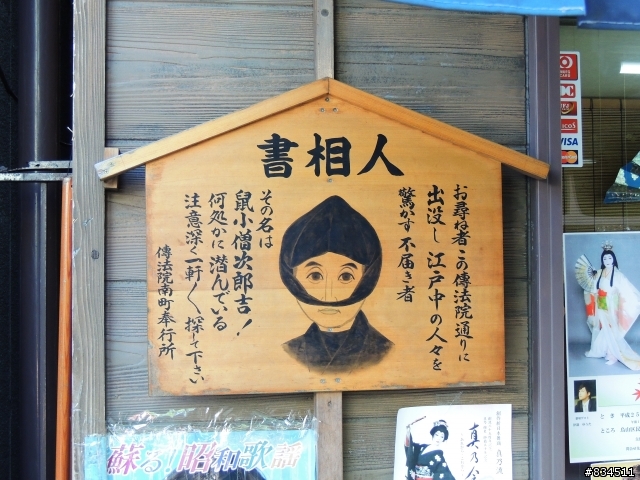 人相書
お尋ね者この傳法院通りに
出没し江戸中の人々を
驚かす不届き者
その名は
鼠小僧次郎吉！
何処かに潜んでいる
注意深く一軒〳〵探して下さい
傳法院南町奉行所
蘇る!昭和歌謡
VISA
#834511